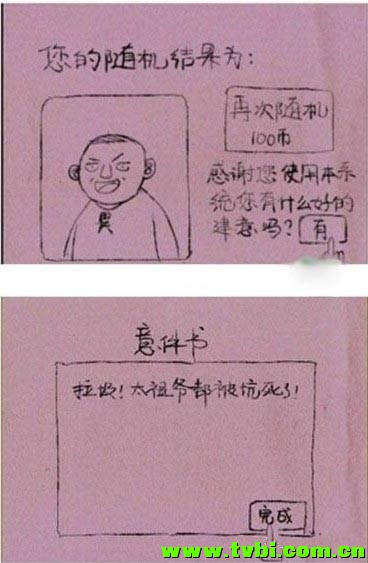 您的随机结果为:
再次随机
100币
男
感谢您使用本系
统您有什么好的
建意吗? 有
意件书
拉圾!太祖爷都被坑死了!
完成
www.tvbi.com.cn